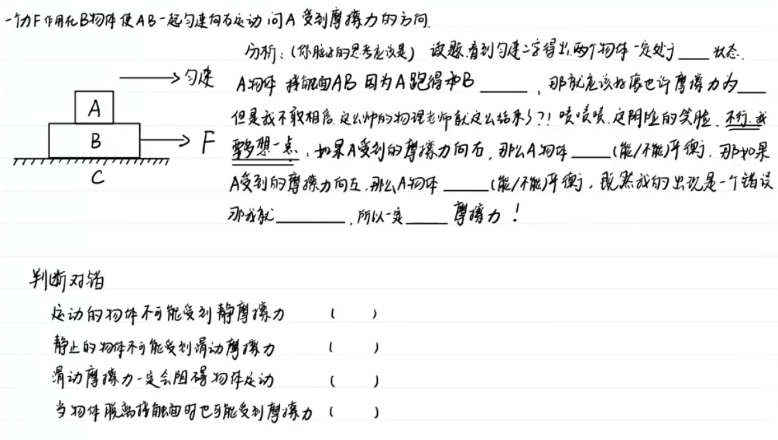 一个力F作用在B物体使AB一起匀速向右运动 问A受到摩擦力的方向.
分析:(你脑子的思考应该是) 读题看到匀速二字得出,两个物体一定处于____状态.
→匀速
A物体 接触面AB 因为A跑得和B ____, 那就应该好像也许摩擦力为____
A
但是我不敢相信 这么帅的物理老师就这么结束了?! 啧啧啧.这阴险的笑脸. 不行.我
B
→ F
要多想一点. 如果A受到的摩擦力向右, 那么A物体____(能/不能)平衡, 那如果
C
A受到的摩擦力向左,那么A物体____(能/不能)平衡, 既然我的出现是一个错误
那我就____, 所以一定____摩擦力!
判断对错
运动的物体不可能受到静摩擦力 ( )
静止的物体不可能受到滑动摩擦力 ( )
滑动摩擦力一定会阻碍物体运动 ( )
当物体脱离接触面时也可能受到摩擦力 ( )